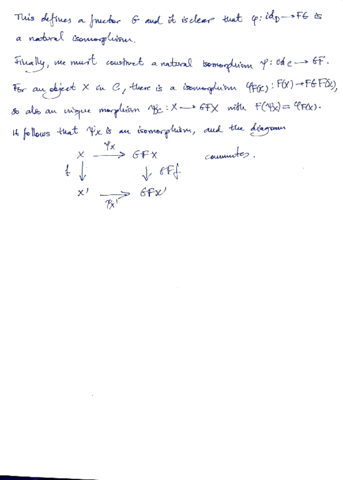 This defines a functor G and it is clear that φ: id_D → FG is
a natural isomorphism.
Finally, we must construct a natural isomorphism ψ: id_C → GF.
For an object X in C, there is a isomorphism φ_F(X): F(X) → FGF(X),
so also an unique morphism ψ_X: X → GFX with F(ψ_X) = φ_F(X).
It follows that ψ_X is an isomorphism, and the diagram
X —ψ_X→ GFX commutes.
f ↓ ↓ GFf
X' —ψ_X'→ GFX'